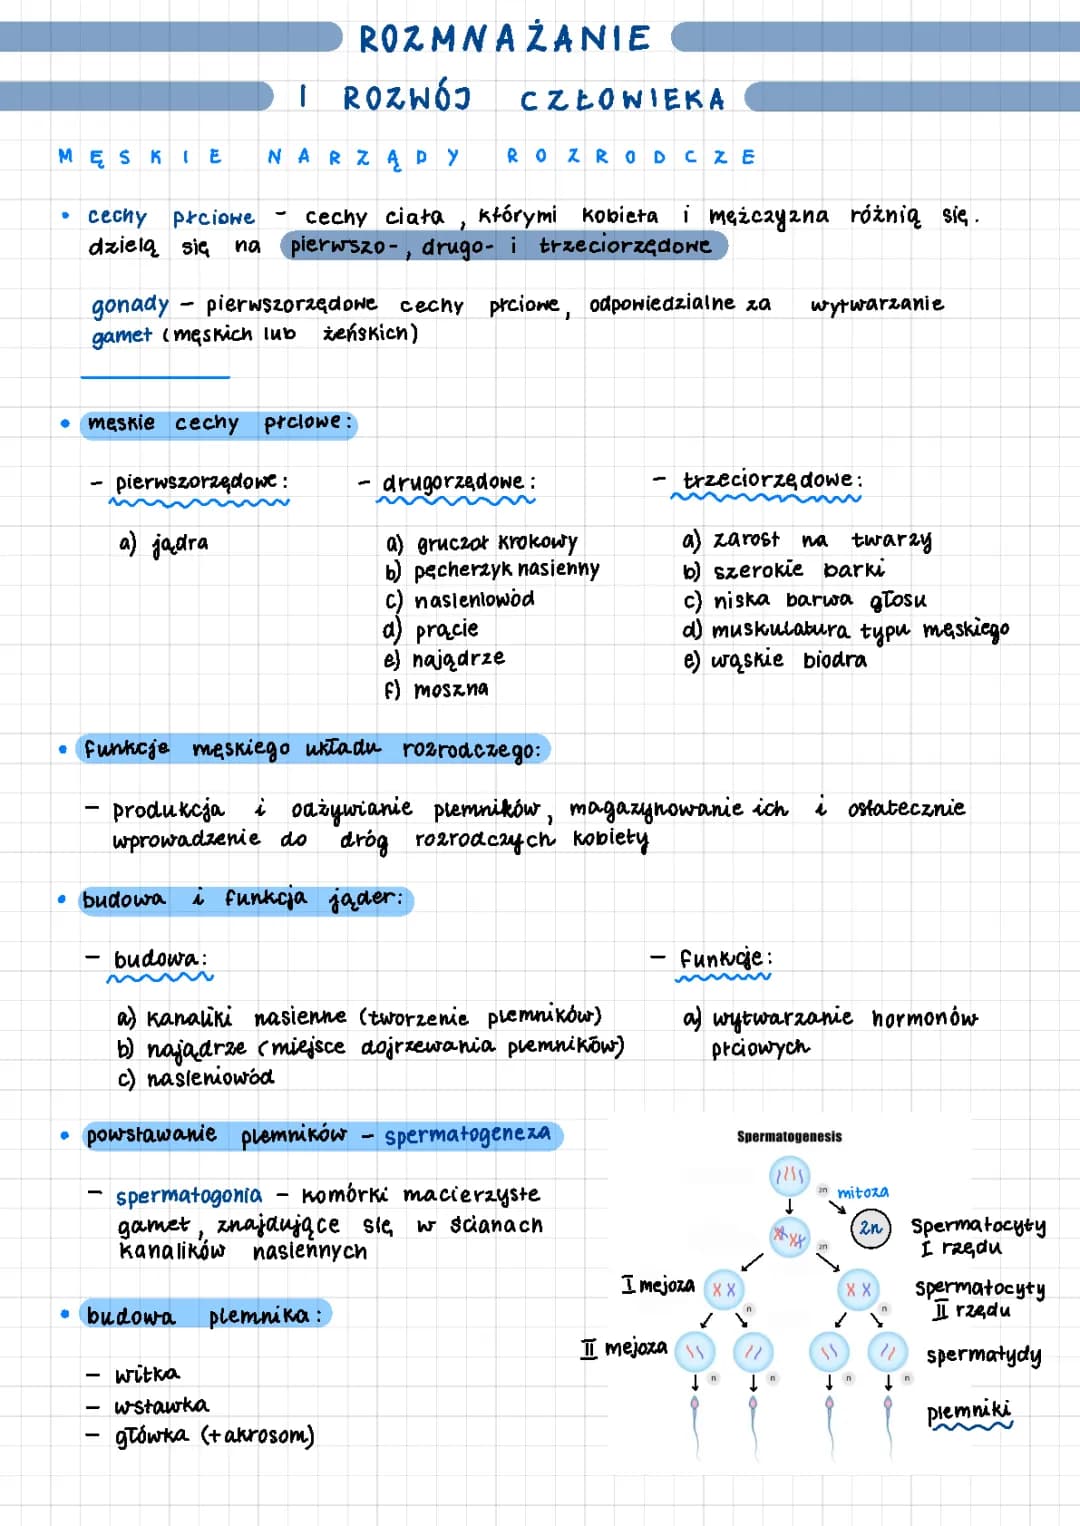 ROZMNAŻANIE
I ROZWÓJ CZŁOWIEKA
MĘSKIE NARZĄDY ROZRODCZE
• cechy płciowe - cechy ciała, którymi kobieta i mężczyzna różnią się.
dzielą się na pierwszo-, drugo- i trzeciorzędowe
gonady – pierwszorzędowe cechy płciowe, odpowiedzialne za wytwarzanie
gamet (męskich lub żeńskich)
• męskie cechy płciowe:
- pierwszorzędowe:
a) jądra
- drugorzędowe:
a) gruczoł krokowy
b) pęcherzyk nasienny
c) nasieniowód
d) prącie
e) najądrze
f) moszna
- trzeciorzędowe:
a) zarost na twarzy
b) szerokie barki
c) niska barwa głosu
d) muskulatura typu męskiego
e) wąskie biodra
• funkcje męskiego układu rozrodczego:
- produkcja i odżywianie plemników, magazynowanie ich i ostatecznie
wprowadzenie do dróg rozrodczych kobiety
• budowa i funkcja jąder:
- budowa:
a) kanaliki nasienne (tworzenie plemników)
b) najądrze (miejsce dojrzewania plemników)
c) nasieniowód
- funkcje:
a) wytwarzanie hormonów
płciowych
• powstawanie plemników - spermatogeneza
- spermatogonia - komórki macierzyste
gamet, znajdujące się w ścianach
kanalików nasiennych
• budowa plemnika:
- witka
- wstawka
- główka (+akrosom)
Spermatogenesis
2n mitoza
2n
Spermatocyty
I rzędu
2n
I mejoza
n
n
Spermatocyty
II rzędu
II mejoza
n
n
n
n
spermatydy
plemniki